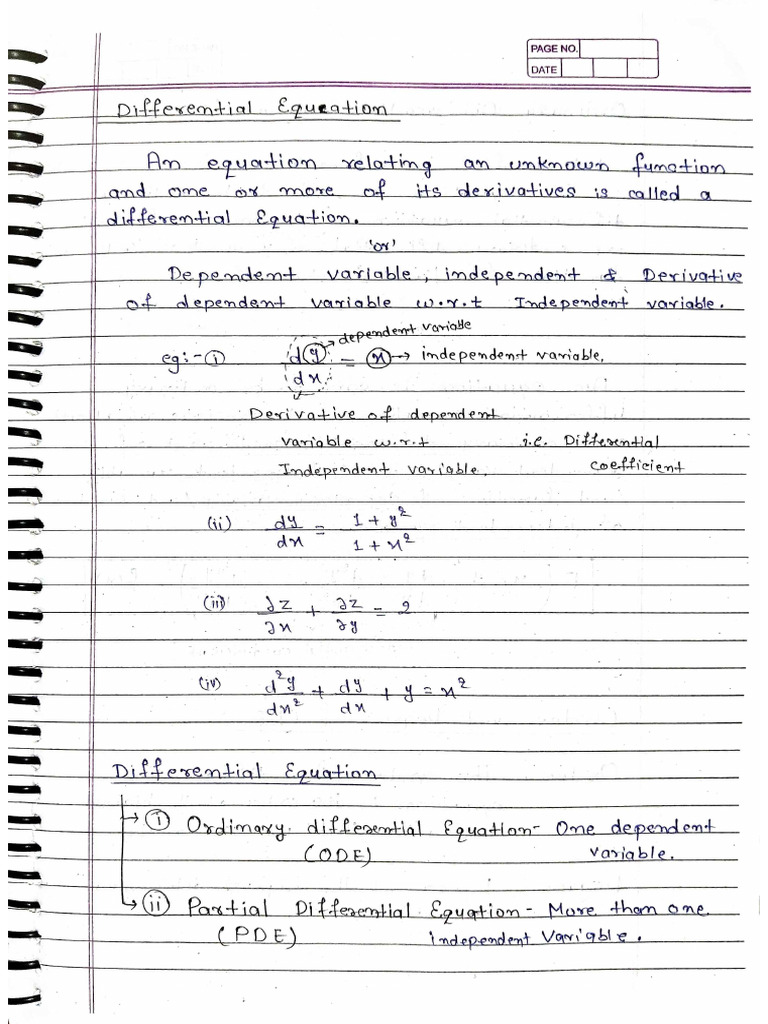 PAGE NO.
DATE
Differential Equation
An equation relating an unknown function
and one or more of its derivatives is called a
differential Equation.
'or'
Dependent variable, independent & Derivative
of dependent variable w.r.t Independent variable.
→ dependent variable
eg:- (i) dy/dx = x → independent variable.
Derivative of dependent
variable w.r.t i.e. Differential
Independent variable. coefficient
(ii) dy/dx = (1 + y²)/(1 + x²)
(iii) ∂z/∂x + ∂z/∂y = 2
(iv) d²y/dx² + dy/dx + y = x²
Differential Equation
→ (i) Ordinary differential Equation - One dependent
(ODE) variable.
→ (ii) Partial Differential Equation - More than one
(PDE) independent Variable.